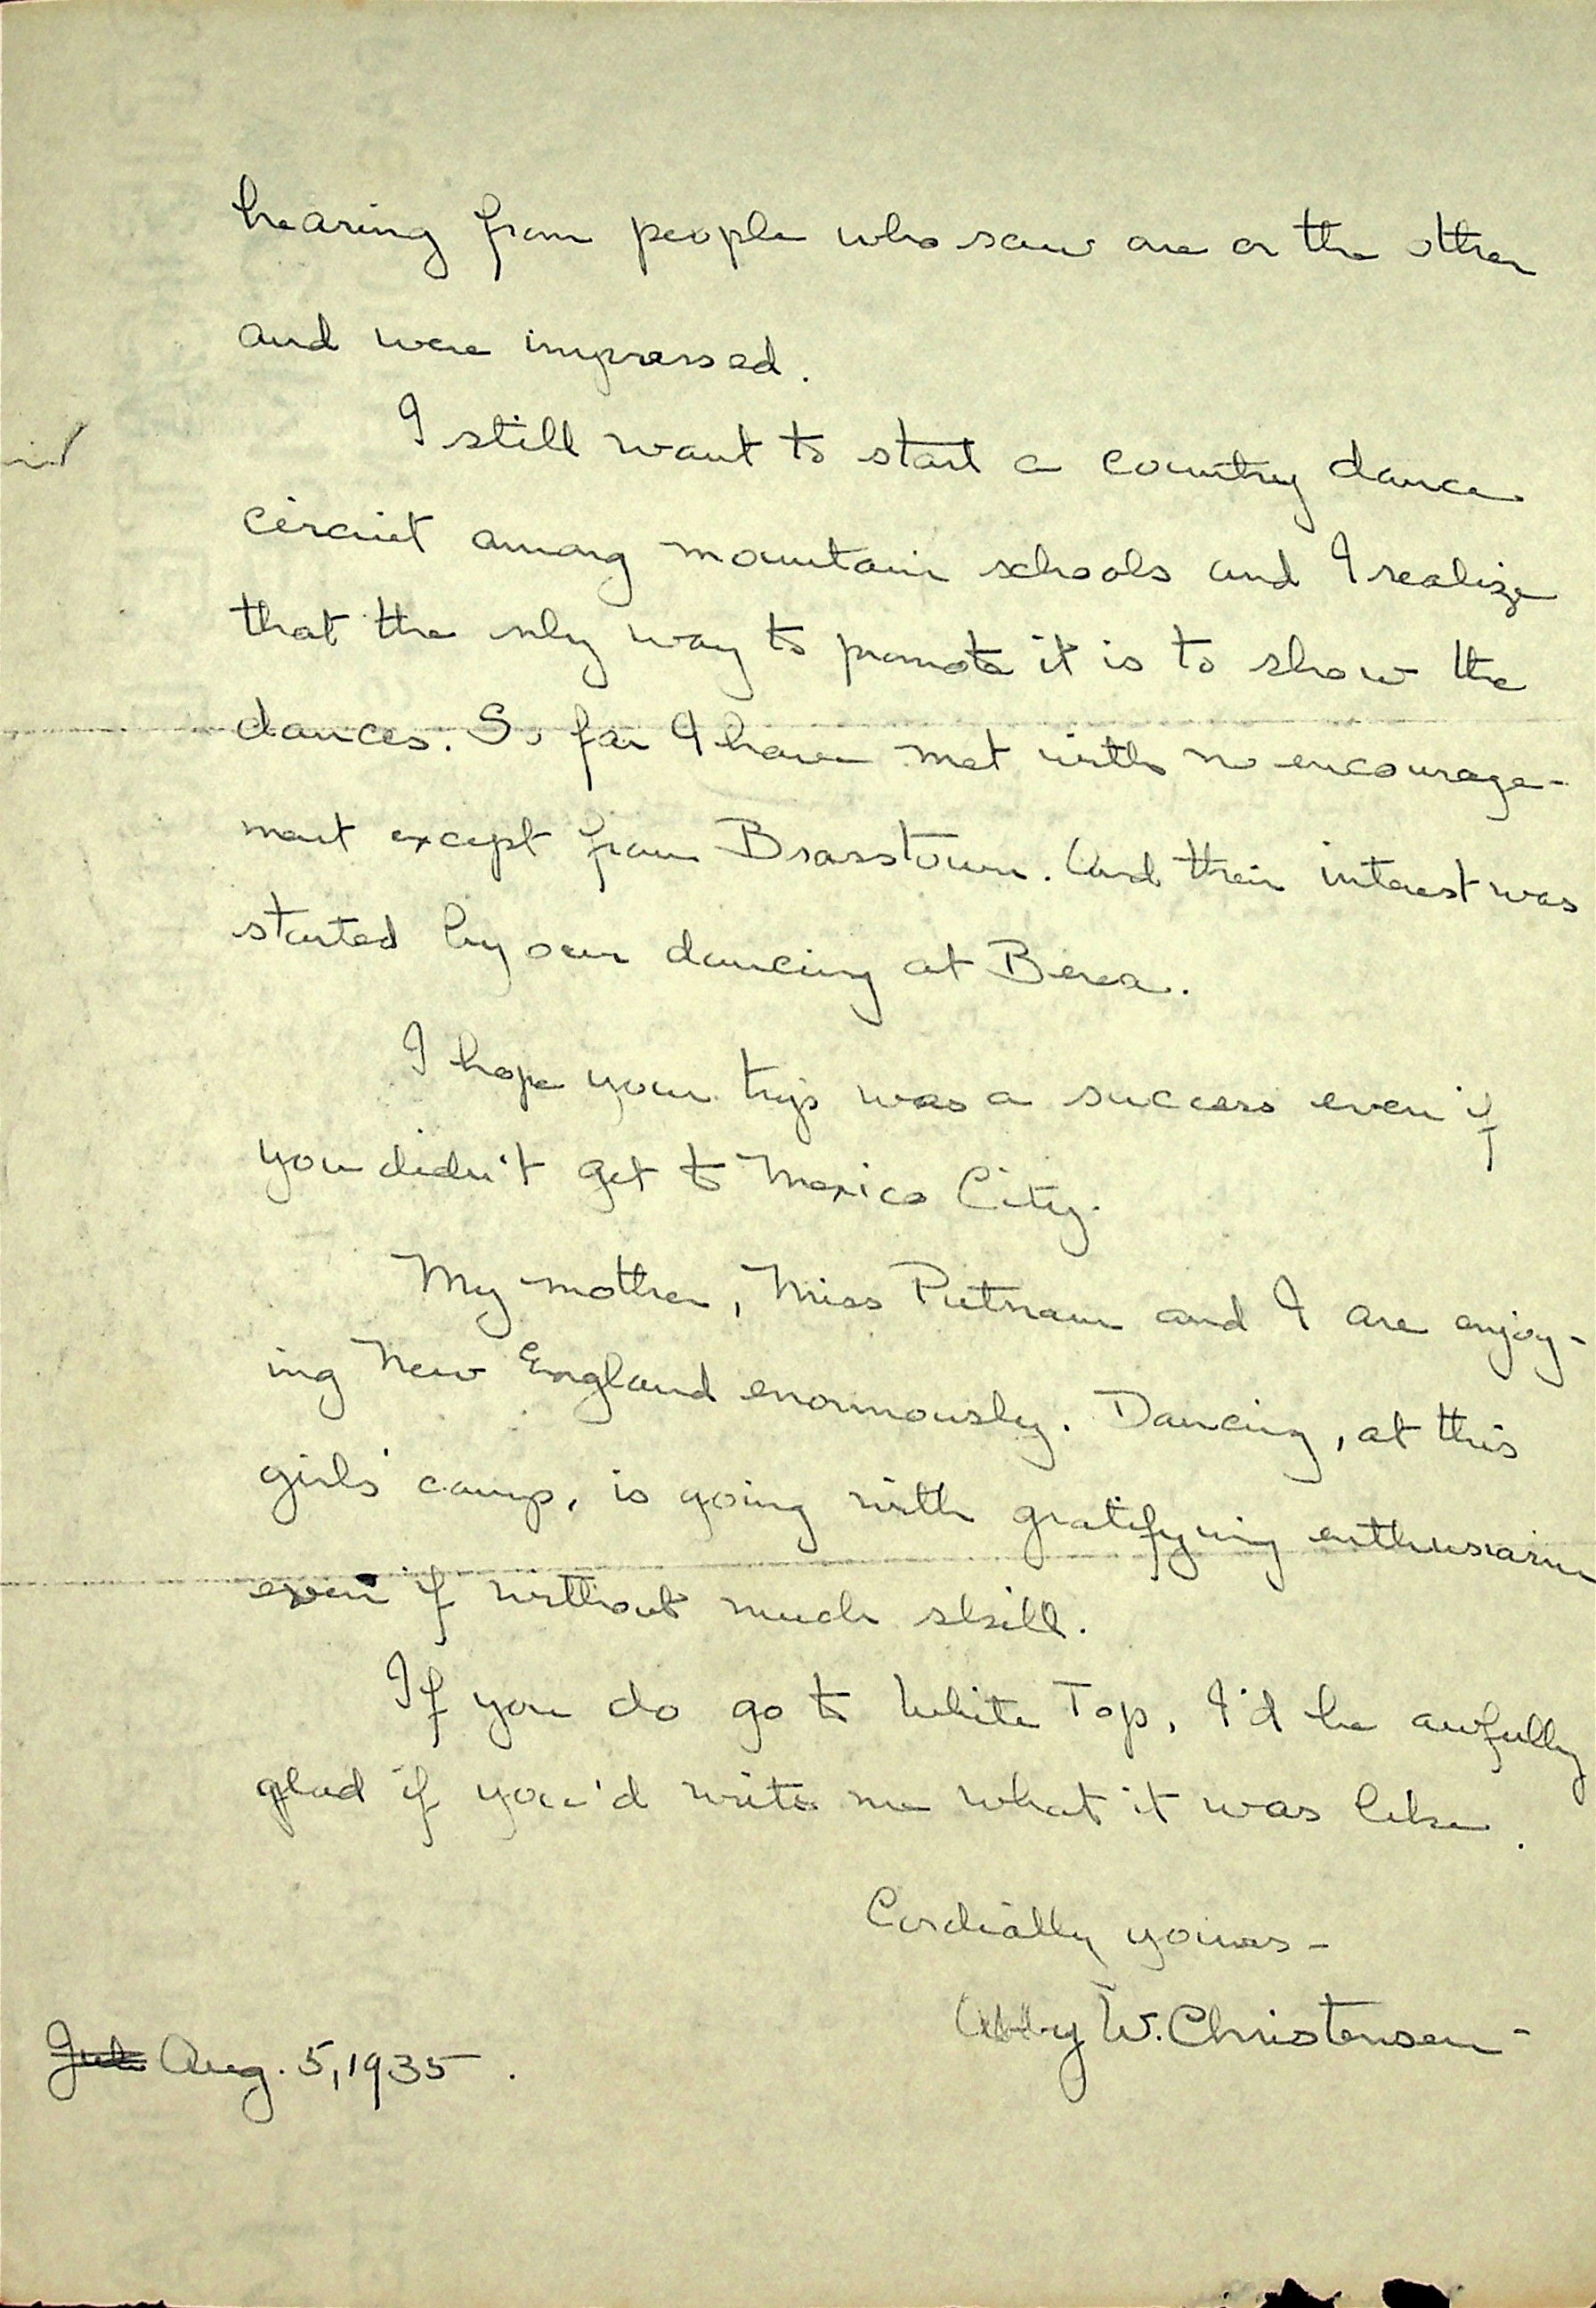 hearing from people who saw one or the other
and were impressed.
I still want to start a country dance
circuit among mountain schools and I realize
that the only way to promote it is to show the
dances. So far I have met with no encourage-
ment except from Brasstown. And their interest was
started by our dancing at Berea.
I hope your trip was a success even if
you didn't get to Mexico City.
My mother, Miss Putnam and I are enjoy-
ing New England enormously. Dancing, at this
girls' camp, is going with gratifying enthusiasm
even if without much skill.
If you do go to White Top, I'd be awfully
glad if you'd write me what it was like.
Cordially yours -
Abby W. Christensen -
Aug. 5, 1935.